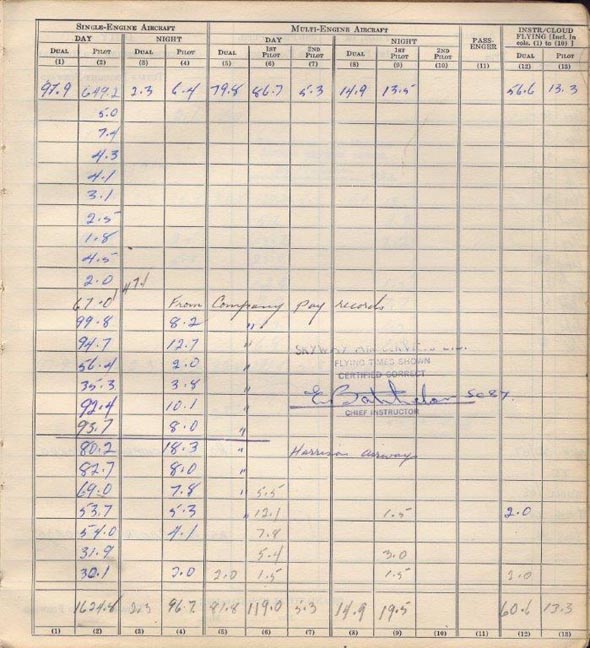 SINGLE-ENGINE AIRCRAFT MULTI-ENGINE AIRCRAFT PASS-ENGER INSTR/CLOUD FLYING [Incl. in cols. (1) to (10) ]
DAY NIGHT DAY NIGHT
DUAL PILOT DUAL PILOT DUAL 1ST PILOT 2ND PILOT DUAL 1ST PILOT 2ND PILOT DUAL PILOT
(1) (2) (3) (4) (5) (6) (7) (8) (9) (10) (11) (12) (13)
97.9 649.2 2.3 6.4 79.8 86.7 5.3 14.9 13.5 56.6 13.3
5.0
7.4
4.3
4.1
3.1
2.5
1.8
4.5
2.0
67.0 From Company pay records
99.8 8.2 "
94.7 12.7 "
56.4 2.0 " FLYING TIMES SHOWN
35.3 3.8 " CERTIFIED CORRECT
92.4 10.1 "
93.7 8.0 " CHIEF INSTRUCTOR
80.2 18.3 " Harrison airways
82.7 8.0 "
69.0 7.8 " 5.5
53.7 5.3 " 12.1 1.5 2.0
54.0 4.1 7.8
31.9 5.4 3.0
30.1 2.0 1.5 1.5 2.0
1624.8 2.3 96.7 81.8 119.0 5.3 14.9 19.5 60.6 13.3
(1) (2) (3) (4) (5) (6) (7) (8) (9) (10) (11) (12) (13)